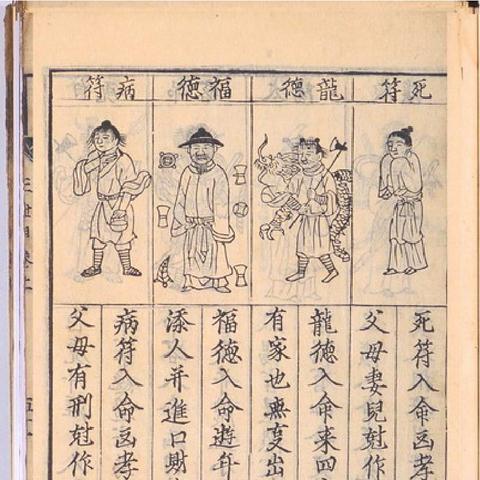 死符
龍德
福德
病符
死符入命凶孝
父母妻兒尅作
龍德入命来四
有家也無
出
福德入命
添人并進口財
病符入命凶孝
父母有刑尅作